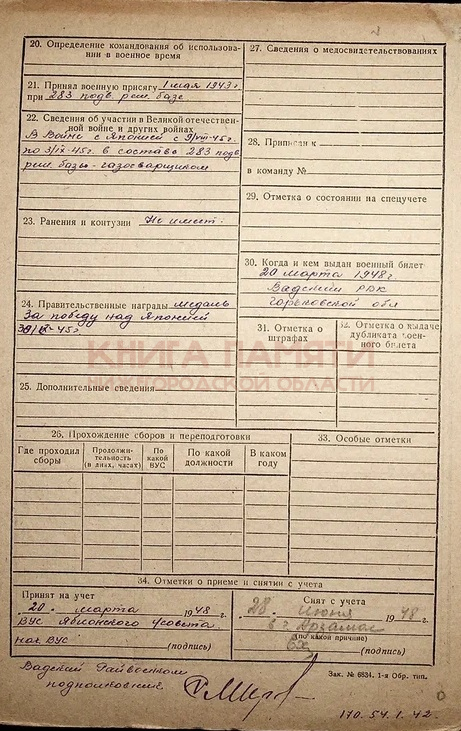 20. Определение командования об использова-
нии в военное время
21. Принял военную присягу 1 мая 1943 г
при 283 подв. рем. базе
22. Сведения об участии в Великой отечествен-
ной войне и других войнах
В войне с Японией с 9/VIII-45 г.
по 3/IX-45 г. в составе 283 подв
рем. базы - газосварщиком
23. Ранения и контузии Не имеет.
24. Правительственные награды медаль
За победу над Японией
30/IX-45 г
25. Дополнительные сведения
27. Сведения о медосвидетельствованиях
28. Приписан к
в команду №
29. Отметка о состоянии на спецучете
30. Когда и кем выдан военный билет
20 марта 1948 г
Вадским РВК
Горьковской обл
31. Отметка о
штрафах
32. Отметка о выдаче
дубликата воен-
ного билета
КНИГА ПАМЯТИ
НИЖЕГОРОДСКОЙ ОБЛАСТИ
26. Прохождение сборов и переподготовки
Где проходил
сборы
Продолжи-
тельность
(в днях, часах)
По
какой
ВУС
По какой
должности
В каком
году
33. Особые отметки
34. Отметки о приеме и снятии с учета
Принят на учет
20. марта 1948 г.
ВУС Яблонского с/совета
нач ВУС
(подпись)
Снят с учета
28 Июня 1948 г.
в г Арзамас
(по какой причине)
(подпись)
Вадский Райвоенком
подполковник
Зак. № 6834. 1-я Обр. тип.
170. 54. 1. 42